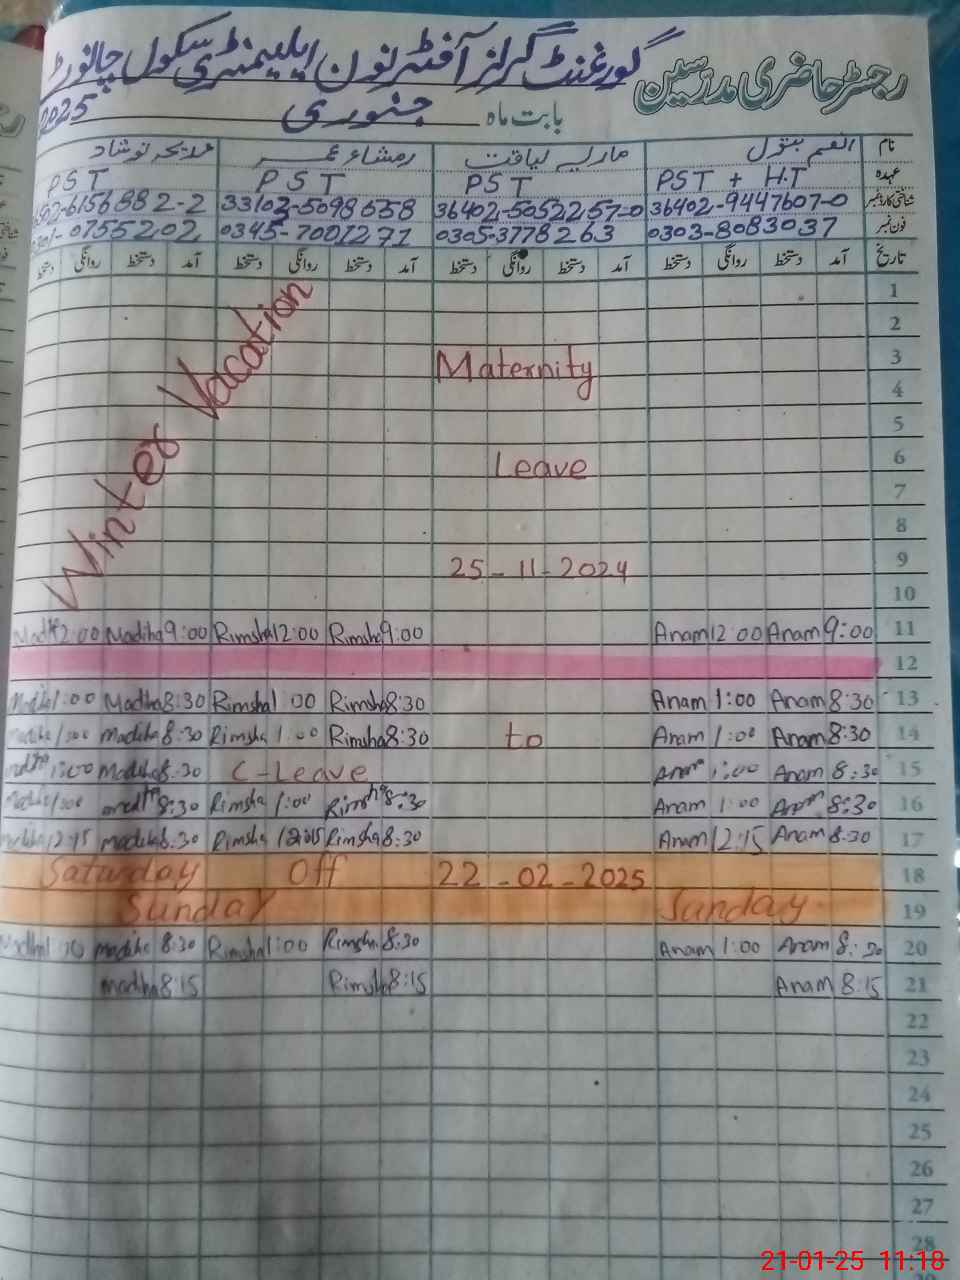 رجسٹر حاضری مدرسین گورنمنٹ گرلز آفٹر نون ایلیمنٹری سکول چانورٹ
بابت ماہ جنوری 2025
نام انعم بتول ماریہ لیاقت رمشاء عمر مدیحہ نوشاد
عہدہ PST + H.T PST PST PST
شناختی کارڈ نمبر 36402-9447607-0 36402-5052257-0 33102-5098658 -6156882-2
فون نمبر 0303-8083037 0305-3778263 0345-7001271 0301-0755202
تاریخ آمد دستخط روانگی دستخط آمد دستخط روانگی دستخط آمد دستخط روانگی دستخط آمد دستخط روانگی دستخط
1
2
3
4
5
6
7
8
9
10
Winter Vacation
Maternity
Leave
25-11-2024
to
22-02-2025
Madi 12:00 Madiha 9:00 Rimsha 12:00 Rimsha 9:00 Anam 12:00 Anam 9:00 11
12
Madiha 1:00 Madiha 8:30 Rimsha 1:00 Rimsha 8:30 Anam 1:00 Anam 8:30 13
Madiha 1:00 Madiha 8:30 Rimsha 1:00 Rimsha 8:30 Anam 1:00 Anam 8:30 14
Madiha 1:00 Madiha 8:30 C-Leave Anam 1:00 Anam 8:30 15
Madiha 1:00 Madiha 8:30 Rimsha 1:00 Rimsha 8:30 Anam 1:00 Anam 8:30 16
Madiha 12:15 Madiha 8:30 Rimsha 12:15 Rimsha 8:30 Anam 12:15 Anam 8:30 17
Saturday Off 18
Sunday Sunday 19
Madiha 1:00 madiha 8:30 Rimsha 1:00 Rimsha 8:30 Anam 1:00 Anam 8:30 20
madiha 8:15 Rimsha 8:15 Anam 8:15 21
22
23
24
25
26
27
28
21-01-25 11:18